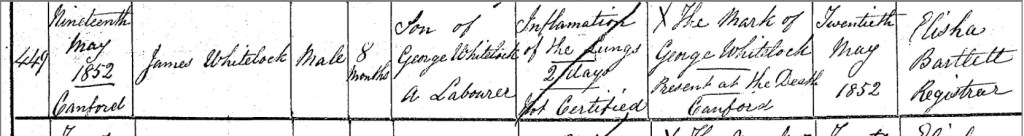 449
Nineteenth
May
1852
Canford
James Whitelock
Male
8
Months
Son of
George Whitelock
A Labourer
Inflamation
of the Lungs
2 days
Not Certified
X The Mark of
George Whitelock
Present at the Death
Canford
Twentieth
May
1852
Elisha
Bartlett
Registrar